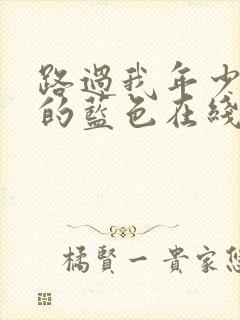 路過我年少
的藍色在綫
橘賢一貴家悠